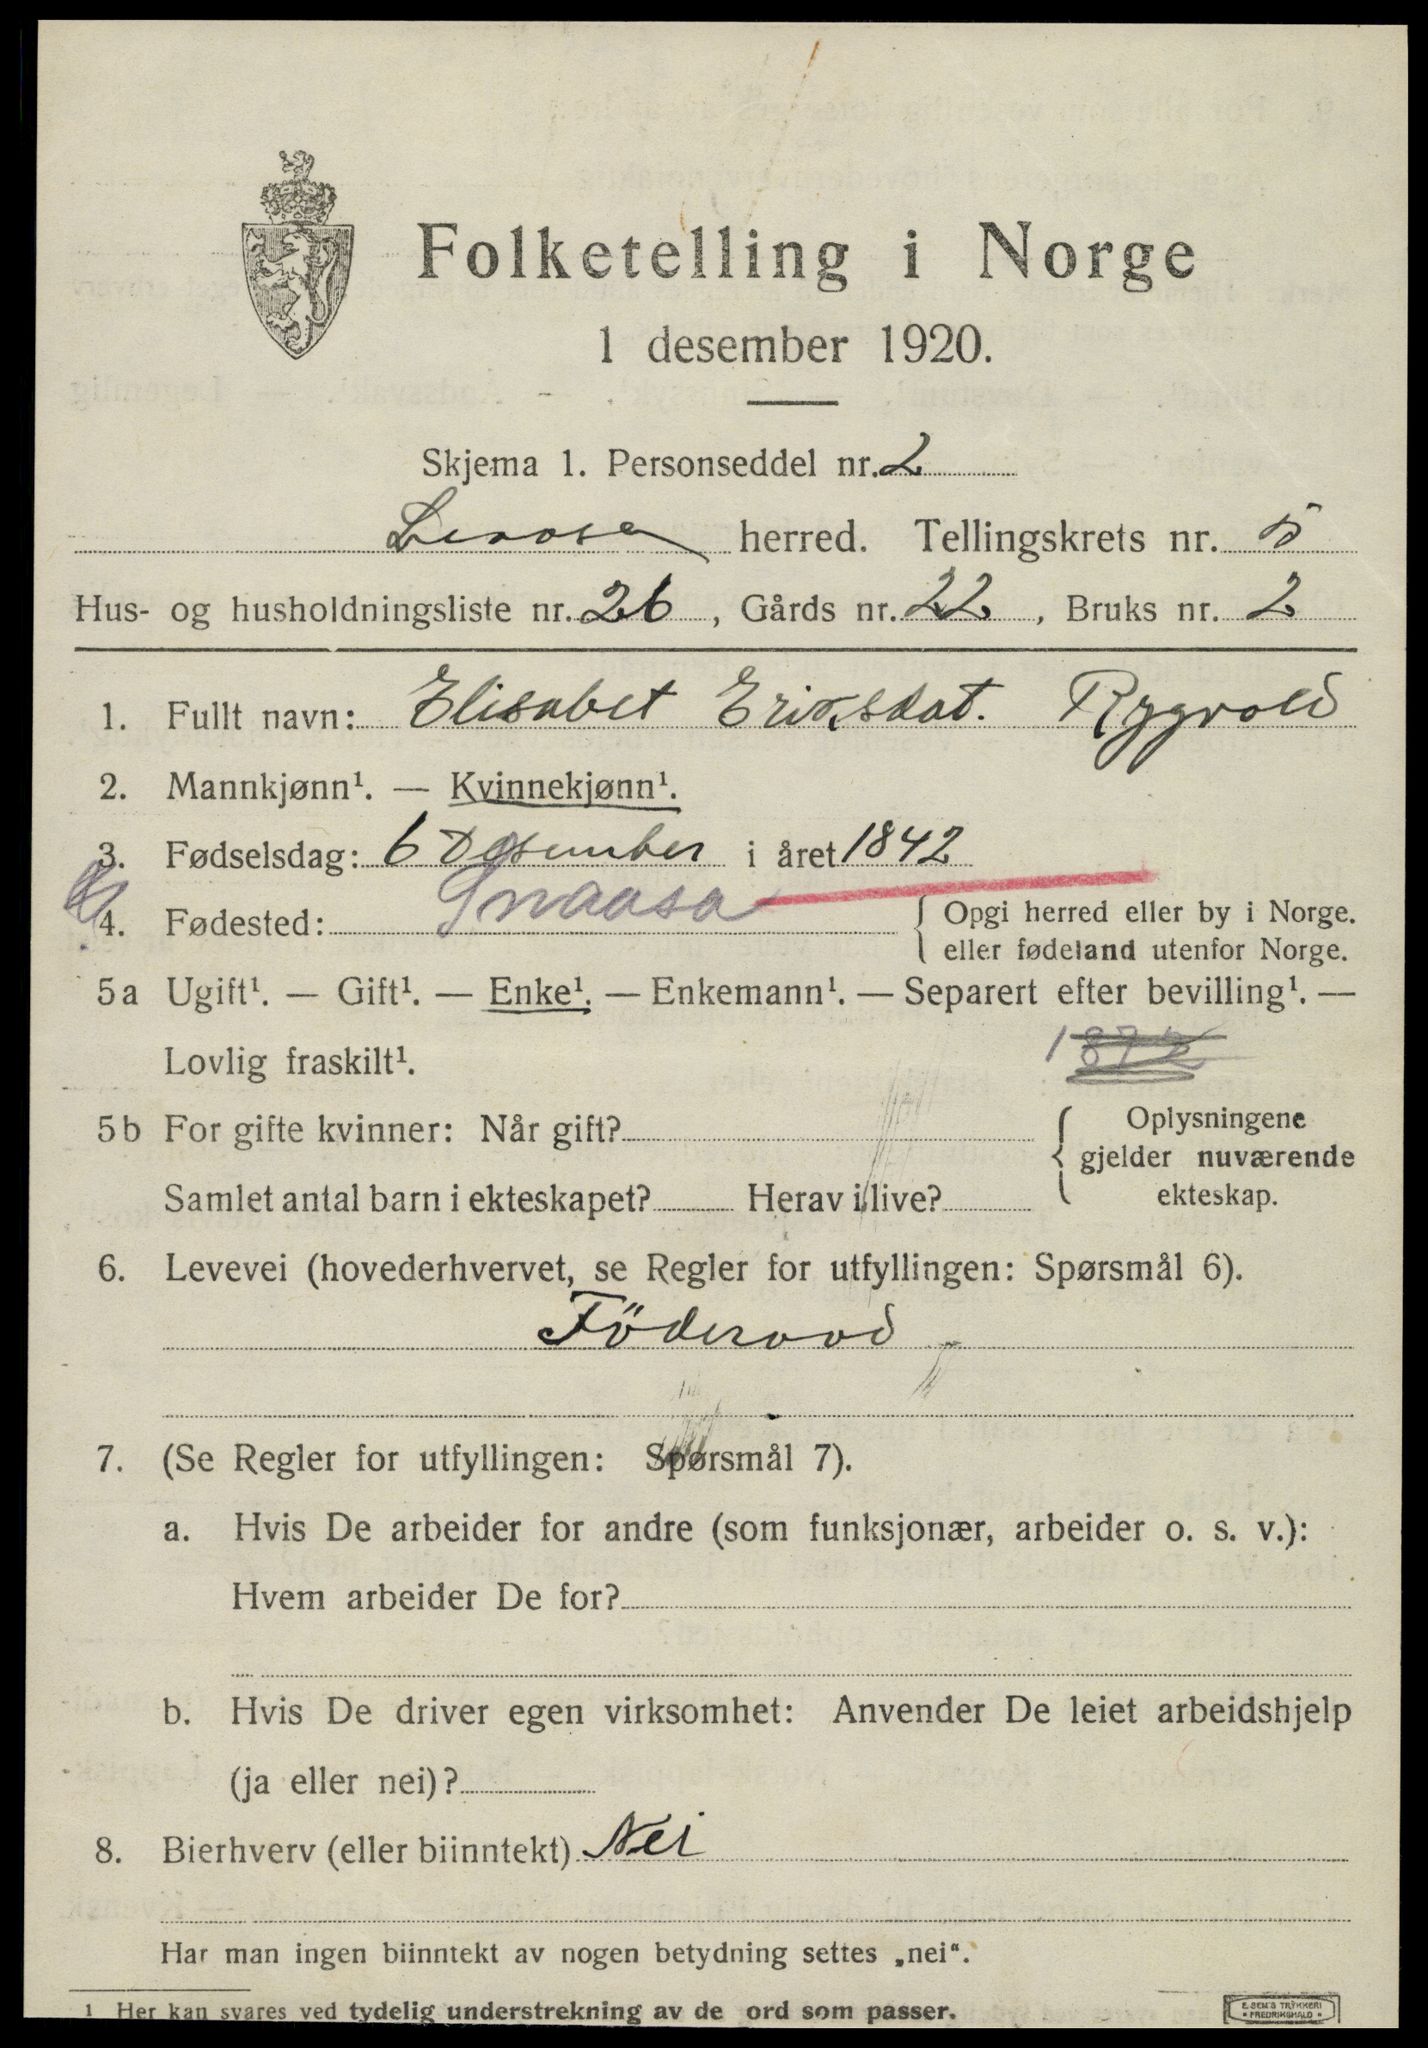 Folketelling i Norge
1 desember 1920.
Skjema 1. Personseddel nr. 2
herred. Tellingskrets nr. 5
Hus- og husholdningsliste nr. 26, Gårds nr. 22, Bruks nr. 2
1. Fullt navn: Elisabet Eriksdat. Rygvold
2. Mannkjønn¹. — Kvinnekjønn¹.
3. Fødselsdag: 6 Desember i året 1842
4. Fødested: Snaasa { Opgi herred eller by i Norge.
eller fødeland utenfor Norge.
5a Ugift¹. — Gift¹. — Enke¹. — Enkemann¹. — Separert efter bevilling¹. —
Lovlig fraskilt¹.
5b For gifte kvinner: Når gift? { Oplysningene
gjelder nuværende
Samlet antal barn i ekteskapet? Herav i live? ekteskap.
6. Levevei (hovederhvervet, se Regler for utfyllingen: Spørsmål 6).
Föderaad
7. (Se Regler for utfyllingen: Spørsmål 7).
a. Hvis De arbeider for andre (som funksjonær, arbeider o. s. v.):
Hvem arbeider De for?
b. Hvis De driver egen virksomhet: Anvender De leiet arbeidshjelp
(ja eller nei)?
8. Bierhverv (eller biinntekt) Nei
Har man ingen biinntekt av nogen betydning settes „nei“.
1 Her kan svares ved tydelig understrekning av de ord som passer.
E. SEM'S TRYKKERI
• FREDRIKSHALD •